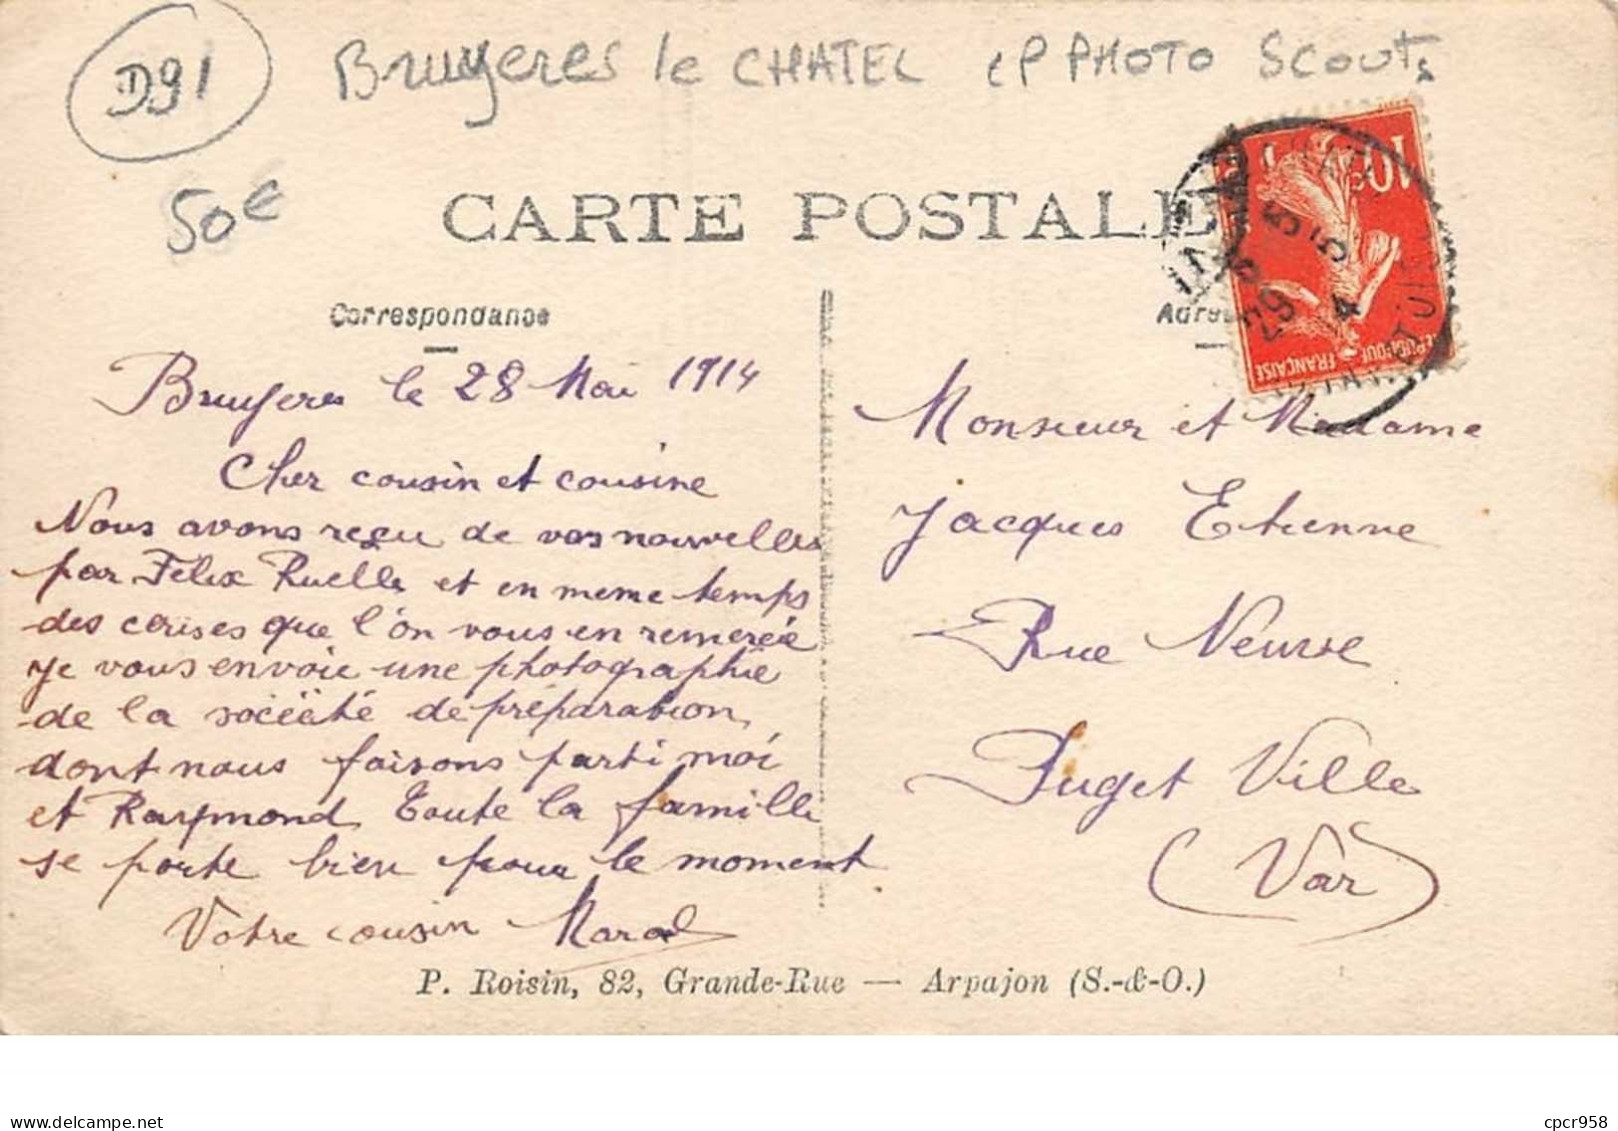 D91
Bruyeres le CHATEL cP PHOTO Scouts
50€
CARTE POSTALE
Correspondance
Bruyeres le 28 Mai 1914
Cher cousin et cousine
Nous avons reçu de vos nouvelles
par Felix Ruelle et en meme temps
des cerises que l'on vous en remercie
je vous envoie une photographie
de la société de préparation
dont nous faisons parti moi
et Raymond Toute la famille
se porte bien pour le moment
Votre cousin
10
REPUBLIQUE FRANÇAISE
Monsieur et Madame
Jacques Etienne
Rue Neuve
Puget Ville
(Var)
P. Roisin, 82, Grande-Rue — Arpajon (S.-&-O.)
delcampe.net
cpcr958